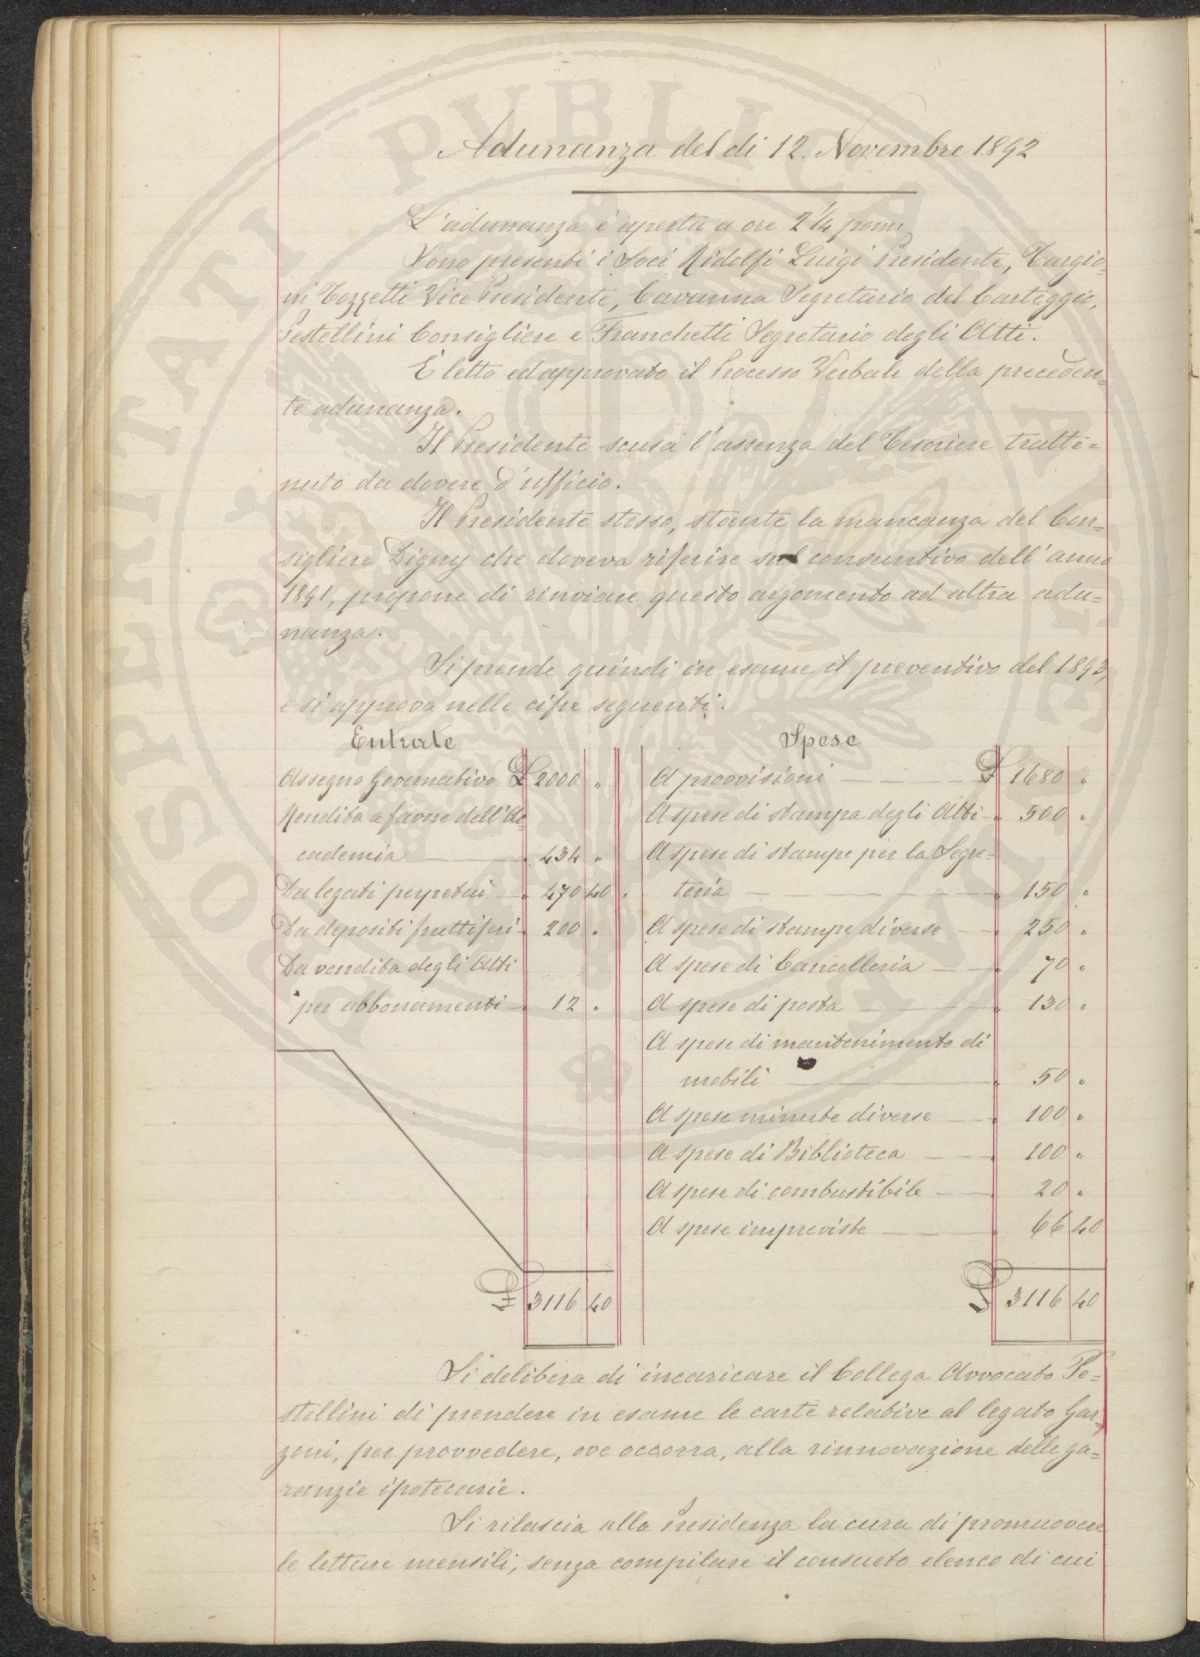 Adunanza del di 12. Novembre 1892
L'adunanza è aperta a ore 2 1/4 pom.
Sono presenti i Soci Ridolfi Luigi Presidente, Targio-
ni Tozzetti Vice Presidente, Cavanna Segretario del Carteggio,
Pestellini Consigliere e Franchetti Segretario degli Atti.
È letto ed approvato il Processo Verbale della preceden-
te adunanza.
Il Presidente scusa l'assenza del Tesoriere tratte=
nuto da dovere d'ufficio.
Il Presidente stesso, stante la mancanza del Con-
sigliere Digny che doveva riferire sul consuntivo dell'anno
1891, propone di rinviare questo argomento ad altra adu=
nanza.
Si prende quindi in esame il preventivo del 1893,
e si approva nelle cifre seguenti:
Entrate
Assegno Governativo £ 2000 "
Rendita a favore dell'Ac-
cademia " 434 "
Da legati perpetui " 470 40
Da depositi fruttiferi " 200 "
Da vendita degli Atti
per abbonamenti " 12 "
£ 3116 40
Spese
A provvisioni £ 1680 "
A spese di stampa degli Atti " 500 "
A spese di stampe per la Segre-
teria " 150 "
A spese di stampe diverse " 250 "
A spese di Cancelleria " 70 "
A spese di posta " 130 "
A spese di mantenimento di
mobili " 50 "
A spese minute diverse " 100 "
A spese di Biblioteca " 100 "
A spese di combustibile " 20 "
A spese impreviste " 66 40
£ 3116 40
Si delibera di incaricare il Collega Avvocato Pe=
stellini di prendere in esame le carte relative al legato Gar-
zoni, per provvedere, ove occorra, alla rinnovazione delle ga=
ranzie ipotecarie.
Si rilascia alla Presidenza la cura di promuovere
le letture mensili, senza compilare il consueto elenco di cui